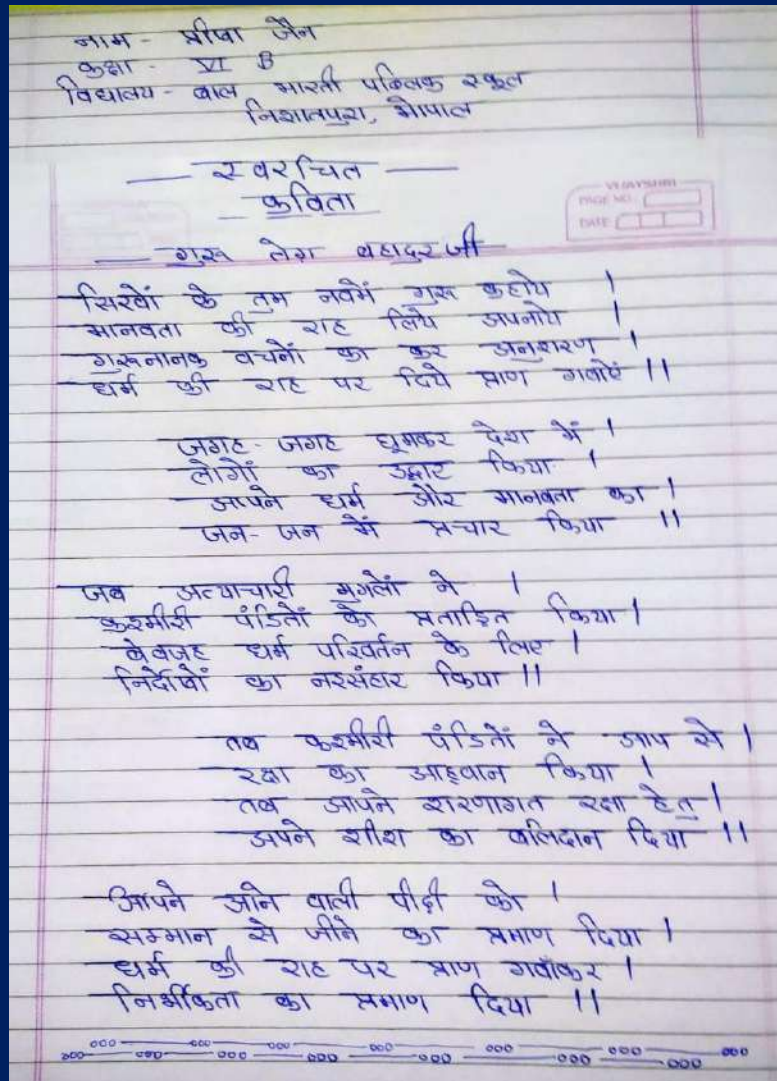 नाम - प्रीषा जैन
कक्षा - VI B
विद्यालय - बाल भारती पब्लिक स्कूल
निशातपुरा, भोपाल
स्वरचित
कविता
VIJAYSHRI
PAGE NO.
DATE
गुरू तेग बहादुर जी
सिखों के तुम नवमें गुरू कहाये ।
मानवता की राह लिये अपनाये ।
गुरूनानक वचनों का कर अनुशरण ।
धर्म की राह पर दिये प्राण गवाऐं ।।
जगह-जगह घूमकर देश में ।
लोगों का उद्धार किया ।
आपने धर्म और मानवता का ।
जन-जन में प्रचार किया ।।
जब अत्याचारी मुगलों ने ।
कश्मीरी पंडितों को प्रताड़ित किया ।
बेवजह धर्म परिवर्तन के लिए ।
निर्दोषों का नरसंहार किया ।।
तब कश्मीरी पंडितों ने आप से ।
रक्षा का आह्वान किया ।
तब आपने शरणागत रक्षा हेतु ।
अपने शीश का बलिदान दिया ।।
आपने आने वाली पीढ़ी को ।
सम्मान से जीने का प्रमाण दिया ।
धर्म की राह पर प्राण गवाँकर ।
निर्भीकता का प्रमाण दिया ।।